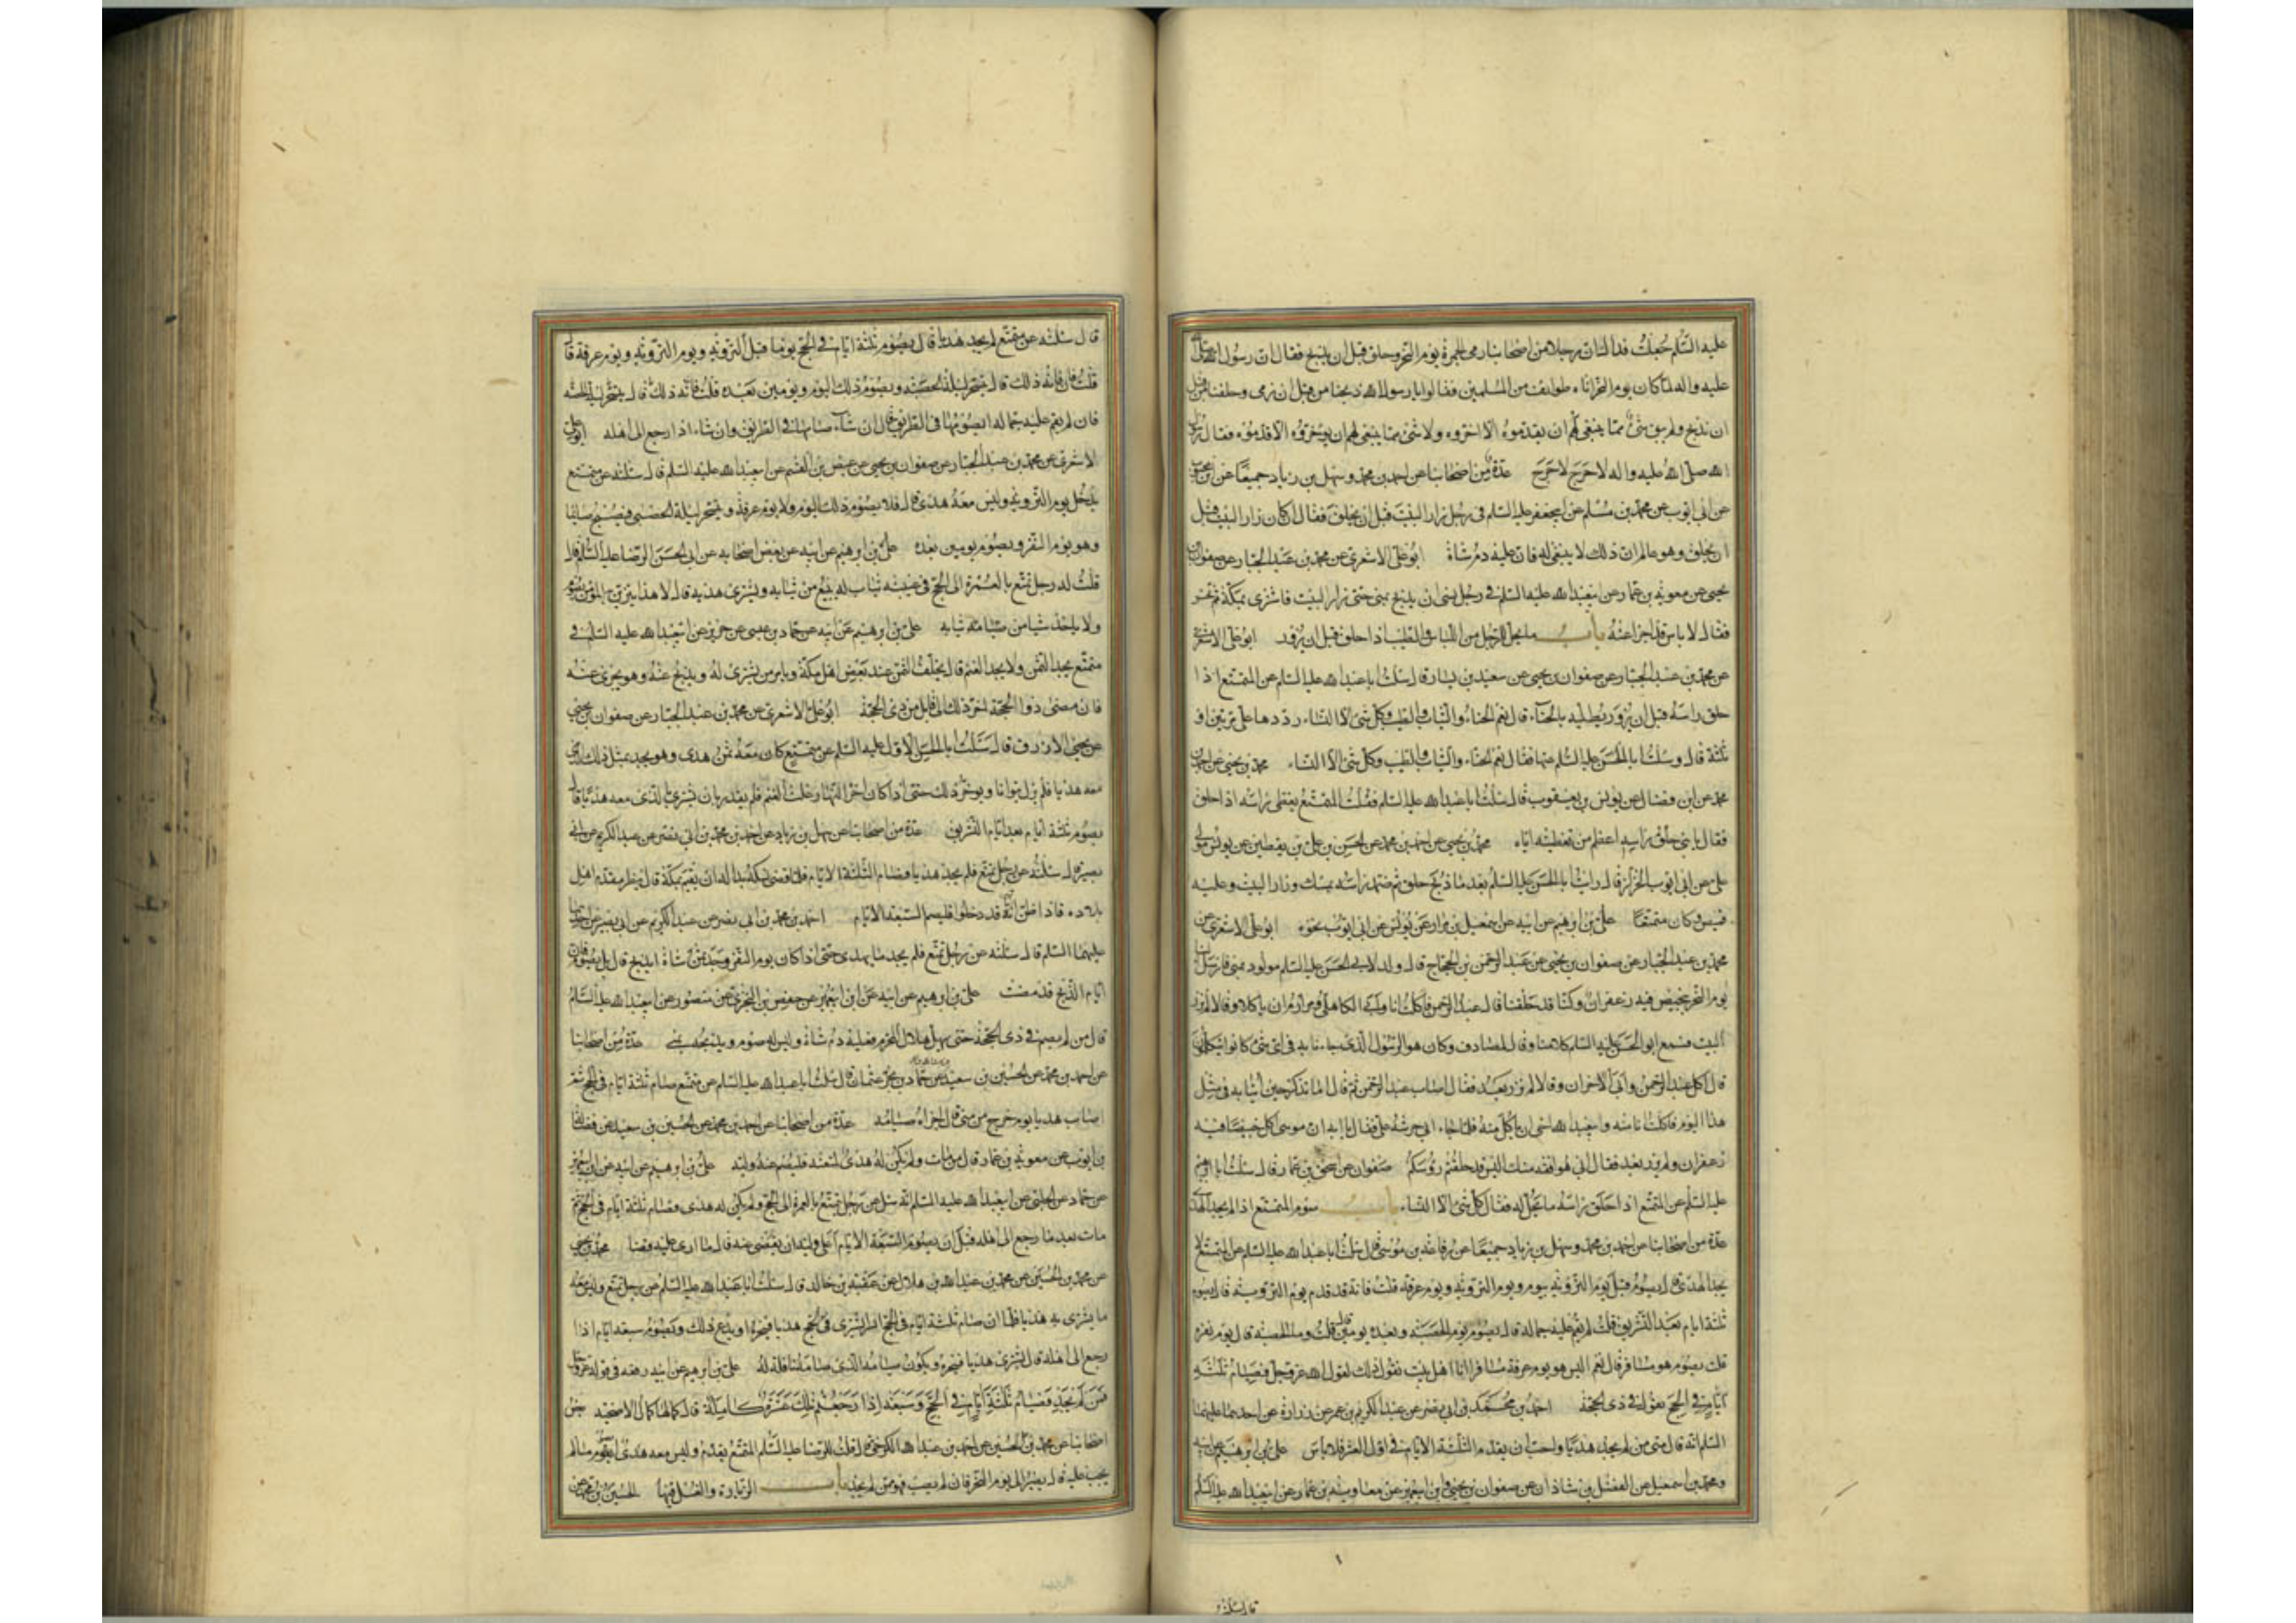 عليه السلم جعلت فداك ان رجلا من اصحابنا رمى الجمرة يوم النحر وحلق قبل ان يذبح فقال ان رسول الله صلى الله
عليه واله لما كان يوم النحر اتاه طوايف من المسلمين فقالوا يا رسول الله ذبحنا من قبل ان نرمى وحلقنا من قبل
ان نذبح ولم يبق شئ مما ينبغى لهم ان يقدموه الا اخروه ولا شئ مما ينبغى لهم ان يؤخروه الا قدموه فقال رسول
الله صلى الله عليه واله لا حرج لا حرج عدة من اصحابنا عن احمد بن محمد وسهل بن زياد جميعا عن ابن محبوب
عن ابى ايوب عن محمد بن مسلم عن ابيجعفر عليه السلم فى رجل زار البيت قبل ان يحلق فقال ان كان زار البيت قبل
ان يحلق وهو عالم ان ذلك لا ينبغى له فان عليه دم شاة ابو على الاشعرى عن محمد بن عبد الجبار عن صفوان بن
يحيى عن معوية بن عمار عن ابيعبد الله عليه السلم فى رجل نسى ان يذبح بمنى حتى زار البيت فاشترى بمكة ثم نحر
فقال لا باس قد اجزا عنه باب ما يحل للرجل من اللباس والطيب اذا حلق قبل ان يزور ابو على الاشعرى
عن محمد بن عبد الجبار عن صفوان بن يحيى عن سعيد بن يسار قال سئلت ابا عبد الله عليه السلم عن المتمتع اذا
حلق راسه قبل ان يزور يطليه بالحناء قال نعم الحناء والثياب والطيب وكل شئ الا النساء رددها على مرتين او
ثلثة قال وسئلت ابا الحسن عليه السلم عنها فقال نعم الحناء والثياب والطيب وكل شئ الا النساء محمد بن يحيى عن احمد بن
محمد عن ابن فضال عن يونس بن يعقوب قال سئلت ابا عبد الله عليه السلم فقلت المتمتع يغطى راسه اذا حلق
فقال يا بنى حلق راسه اعظم من تغطيته اياه محمد بن يحيى عن احمد بن محمد عن الحسن بن على بن يقطين عن يونس مولى
على عن ابى ايوب الخزاز قال رايت ابا الحسن عليه السلم بعد ما ذبح حلق ثم ضمد راسه بمسك وزار البيت وعليه
قميص وكان متمتعا على بن ابرهيم عن ابيه عن اسمعيل بن مرار عن يونس عن ابى ايوب نحوه ابو على الاشعرى عن
محمد بن عبد الجبار عن صفوان بن يحيى عن عبد الرحمن بن الحجاج قال ولد لابى الحسن عليه السلم مولود بمنى فارسل الينا
يوم النحر بخبيص فيه زعفران وكنا قد حلقنا قال عبد الرحمن فاكلت انا وابى الكاهلى ومرازم ان ياكلا وقالا لم نزر
البيت فسمع ابو الحسن عليه السلم كلامنا فقال لمصادف وكان هو الرسول الذى جاءنا به فى اى شئ كانوا يتكلمون
قال اكل عبد الرحمن وابى الاخران وقالا لم نزر بعد فقال اصاب عبد الرحمن ثم قال اما تذكر حين اتينا به فى مثل
هذا اليوم فاكلت انا منه وابيعبد الله اخى ان ياكل منه فلما جاء ابى حرشه على فقال يا ابه ان موسى اكل خبيصا فيه
زعفران ولم يزر بعد فقال ابى هو افقه منك اليس قد حلقتم رؤسكم صفوان عن اسحق بن عمار قال سئلت ابا ابرهيم
عليه السلم عن المتمتع اذا حلق راسه ما يحل له فقال كل شئ الا النساء باب صوم المتمتع اذا لم يجد الهدى
عدة من اصحابنا عن احمد بن محمد وسهل بن زياد جميعا عن رفاعة بن موسى قال سئلت ابا عبد الله عليه السلم عن المتمتع لا
يجد الهدى قال يصوم قبل يوم التروية بيوم ويوم التروية ويوم عرفة قلت فانه قد قدم يوم التروية قال يصوم
ثلثة ايام بعد التشريق قلت لم يقم عليه جماله قال يصوم يوم الحصبة وبعده يومين قال قلت وما الحصبة قال يوم نفره
قلت يصوم وهو مسافر قال نعم اليس هو يوم عرفة مسافرا انا اهل بيت نقول ذلك لقول الله عز وجل فصيام ثلثة
ايام فى الحج يقول فى ذى الحجة احمد بن محمد بن ابى نصر عن عبد الكريم بن عمر عن زرارة عن احدهما عليهما
السلم انه قال من لم يجد هديا واحب ان يقدم الثلثة الايام فى اول العشر فلا باس على بن ابرهيم عن ابيه
ومحمد بن اسمعيل عن الفضل بن شاذان عن صفوان بن يحيى وابن ابيعمير عن معاوية بن عمار عن ابيعبد الله عليه السلم
قال سئلته
قال سئلته عن متمتع لم يجد هديا قال يصوم ثلثة ايام فى الحج يوما قبل التروية ويوم التروية ويوم عرفة قال
قلت فان فاته ذلك قال يتسحر ليلة الحصبة ويصوم ذلك اليوم ويومين بعده قلت فان فاته ذلك قال يتسحر ليلة الحصبة
فان لم يقم عليه جماله ايصومها فى الطريق قال ان شاء صامها فى الطريق وان شاء اذا رجع الى اهله ابو على
الاشعرى عن محمد بن عبد الجبار عن صفوان بن يحيى عن عيص بن القسم عن ابيعبد الله عليه السلم قال سئلته عن متمتع
يدخل يوم التروية وليس معه هدى قال فلا يصوم ذلك اليوم ولا يوم عرفة ويتسحر ليلة الحصبة فيصبح صايما
وهو يوم النفر ويصوم يومين بعده على بن ابرهيم عن ابيه عن بعض اصحابه عن ابى الحسن الرضا عليه السلم قال
قلت له رجل تمتع بالعمرة الى الحج فى عيبته ثياب له يبيع من ثيابه ويشترى هديه قال لا هذا يتزين به المؤمن يصوم
ولا ياخذ شيا من ثيابه على بن ابرهيم عن ابيه عن حماد بن عيسى عن حريز عن ابيعبد الله عليه السلم فى
متمتع يجد الثمن ولا يجد الغنم قال يخلف الثمن عند بعض اهل مكة ويامر من يشترى له ويذبح عنه وهو يجزى عنه
فان مضى ذو الحجة اخر ذلك الى قابل من ذى الحجة ابو على الاشعرى عن محمد بن عبد الجبار عن صفوان بن يحيى
عن يحيى الازرق قال سئلت ابا الحسن الاول عليه السلم عن متمتع كان معه ثمن هدى وهو يجد بمثل ذلك الذى
معه هديا فلم يزل يتوانا ويوخر ذلك حتى اذا كان اخر النهار وغلت الغنم فلم يقدر بان يشترى بالذى معه هديا قال
يصوم ثلثة ايام بعد ايام التشريق عدة من اصحابنا عن سهل بن زياد عن احمد بن محمد بن ابى نصر عن عبد الكريم عن ابى
بصير قال سئلته عن رجل تمتع فلم يجد هديا فصام الثلثة الايام فلما قضى نسكه بدا له ان يقيم بمكة قال ينظر مقدم اهل
بلاده فاذا ظن انهم قد دخلوا فليصم السبعة الايام احمد بن محمد بن ابى نصر عن عبد الكريم عن ابى بصير عن احدهما
عليهما السلم قال سئلته عن رجل تمتع فلم يجد ما يهدى حتى اذا كان يوم النفر وجد ثمن شاة ايذبح قال بل يصوم فان
ايام الذبح قد مضت على بن ابرهيم عن ابيه عن ابن ابيعمير عن حفص بن البخترى عن منصور عن ابيعبد الله عليه السلم
قال من لم يصم فى ذى الحجة حتى يهل هلال المحرم فعليه دم شاة وليس له صوم ويذبحه بمنى عدة من اصحابنا
عن احمد بن محمد عن الحسين بن سعيد عن حماد بن عثمان قال سئلت ابا عبد الله عليه السلم عن متمتع صام ثلثة ايام فى الحج ثم
اصاب هديا يوم خرج من منى قال اجزاه صيامه عدة من اصحابنا عن احمد بن محمد عن الحسين بن سعيد عن فضالة
بن ايوب عن معوية بن عمار قال من مات ولم يكن له هدى لمتعته فليصم عنه وليه على بن ابرهيم عن ابيه عن ابن ابيعمير
عن حماد عن الحلبى عن ابيعبد الله عليه السلم انه سئل عن رجل يتمتع بالعمرة الى الحج ولم يكن له هدى فصام ثلثة ايام فى الحج ثم
مات بعد ما رجع الى اهله قبل ان يصوم السبعة الايام اعلى وليه ان يقضى عنه قال ما ارى عليه قضا محمد بن يحيى
عن محمد بن الحسين عن محمد بن عبد الله بن هلال عن عقبة بن خالد قال سئلت ابا عبد الله عليه السلم عن رجل تمتع وليس معه
ما يشترى به هديا فلما ان صام ثلثة ايام فى الحج ايسر ايشترى هديا فينحره او يدع ذلك ويصوم سبعة ايام اذا
رجع الى اهله قال يشترى هديا فينحره ويكون صيامه الذى صامه نافلة له على بن ابرهيم عن ابيه رفعه فى قوله عز وجل
فمن لم يجد فصيام ثلثة ايام فى الحج وسبعة اذا رجعتم تلك عشرة كاملة قال كمالها كمال الاضحية بعض
اصحابنا عن محمد بن الحسين عن احمد بن عبد الله الكرخى قال قلت للرضا عليه السلم المتمتع يقدم وليس معه هدى ايصوم ما لم
يجب عليه قال يصبر الى يوم النحر فان لم يصب فهو ممن لم يجد باب الزيارة والغسل فيها الحسين بن محمد عن